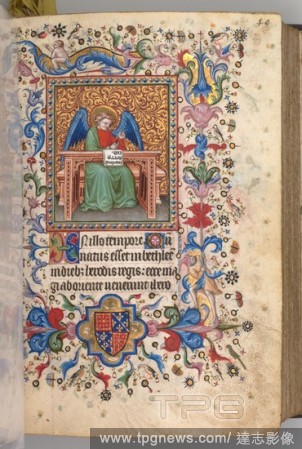 In illo tempore Cu
natus esset in bethlee
in dieb; herodis regis: ecce ma
gi ab oriente venerunt ihero
TPG
www.tpgnews.com/達志影像